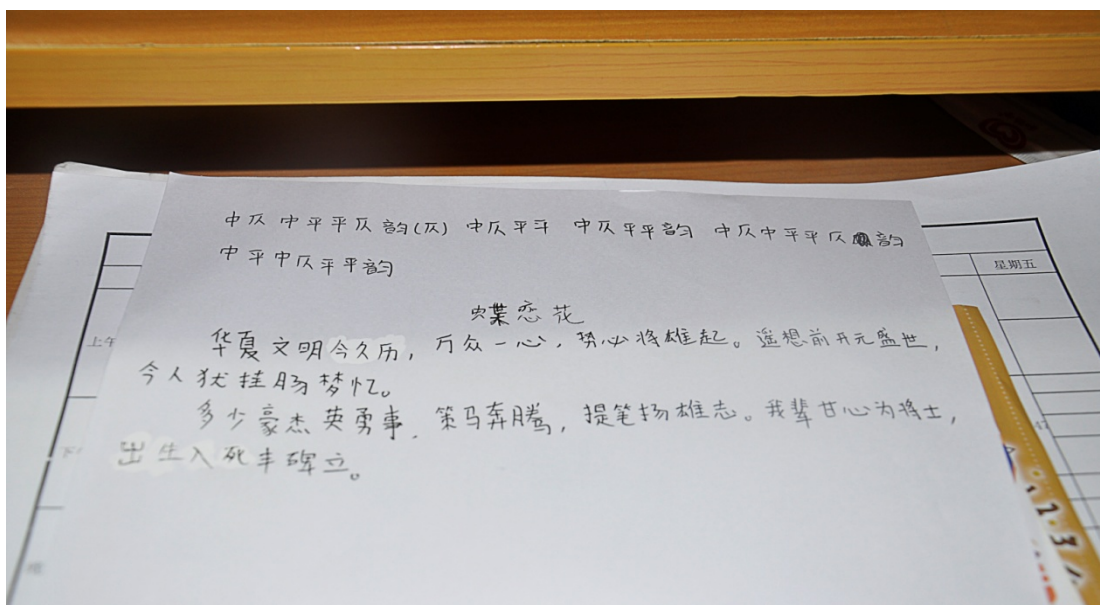 中仄中平平仄韵(仄) 中仄平平 中仄平平韵 中仄中平平仄韵
中平中仄平平韵
星期五
蝶恋花
华夏文明今久历，万众一心，势必将雄起。遥想前开元盛世，
上午
今人犹挂肠梦忆。
多少豪杰英勇事，策马奔腾，提笔扬雄志。我辈甘心为将士，
出生入死丰碑立。